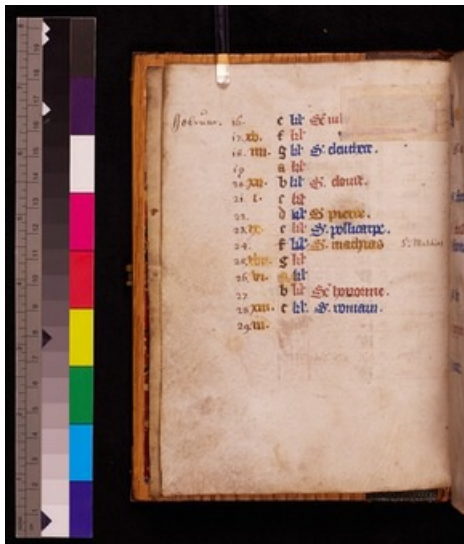 16. e kl' Sᵉ iul
17. xv. f kl'
18. iiii. g kl' S. eleuthere.
19 a kl'
20. xii. b kl' S.
21. i. c kl'
22. d kl' S. pierre.
23. ix. e kl' S. pollicarpe.
24. f kl' S. mathias S. Mathias
25. xvii. g kl'
26. vi. a kl'
27. b kl' Sᵉ honorine.
28. xiiii. c kl' S. romain.
29. iii.